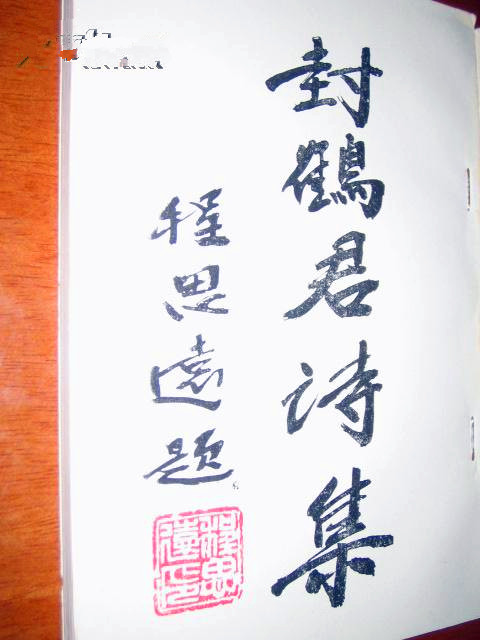 封鶴君诗集
程思遠题
程思遠印